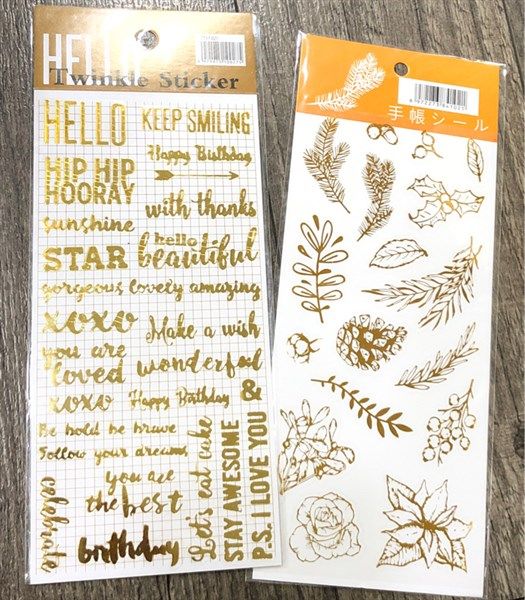 HELLO
Twinkle Sticker
HELLO
KEEP SMILING
HIP HIP
HOORAY
Happy Birthday
sunshine
with thanks
STAR
hello
beautiful
gorgeous lovely amazing
xoxo
Make a wish
you are
loved
wonderful
xoxo
Happy Birthday
&
Be bold be brave
Follow your dreams
you are
the best
celebrate
birthday
Let's eat cake
STAY AWESOME
P.S. I LOVE YOU
手帳シール